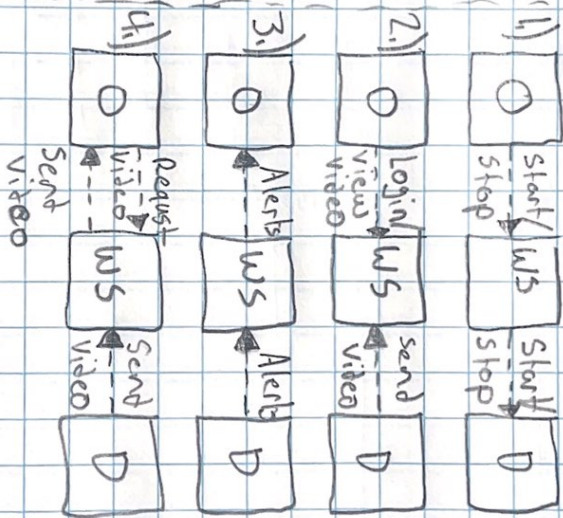 1.)
O
Start/
Stop
WS
Start/
Stop
D
2.)
O
Login/
view
video
WS
send
video
D
3.)
O
Alerts
WS
Alerts
D
4.)
O
Requst
video
Sent
video
WS
Sent
video
D